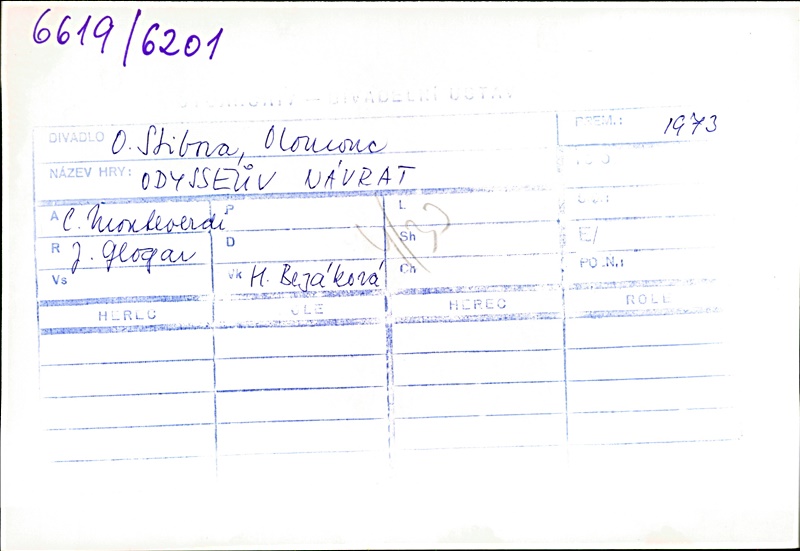 6619/6201
DIVADELNÍ ÚSTAV
DIVADLO O. Stibora, Olomouc PREM.: 1973
NÁZEV HRY: ODYSSEŮV NÁVRAT
A C. Monteverdi P L
R J. Glogar D Sh E/
Vs Vk H. Bezáková Ch POZN.:
HEREC HEREC ROLE